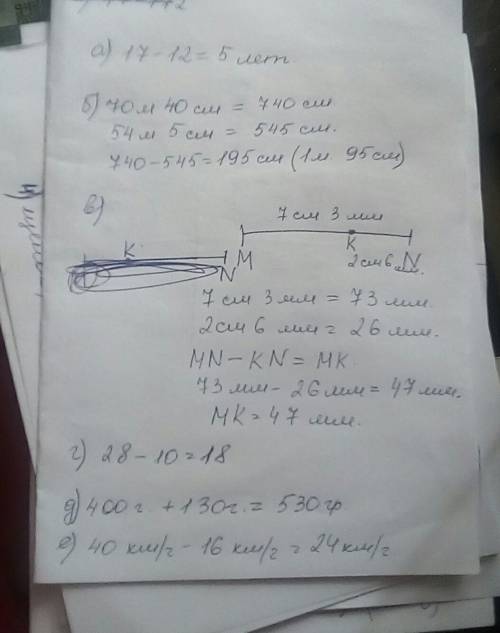 а) 17 - 12 = 5 лет.
б) 70м 40 см = 740 см.
54м 5 см = 545 см.
740 - 545 = 195 см (1м. 95см)
в)
7 см 3 мм
К N M К N
2см 6 мм.
7 см 3 мм = 73 мм.
2см 6 мм = 26 мм.
MN - KN = MK.
73 мм - 26 мм = 47 мм.
MK = 47 мм.
г) 28 - 10 = 18
д) 400 г. + 130 г. = 530 гр
е) 40 км/г - 16 км/г = 24 км/г